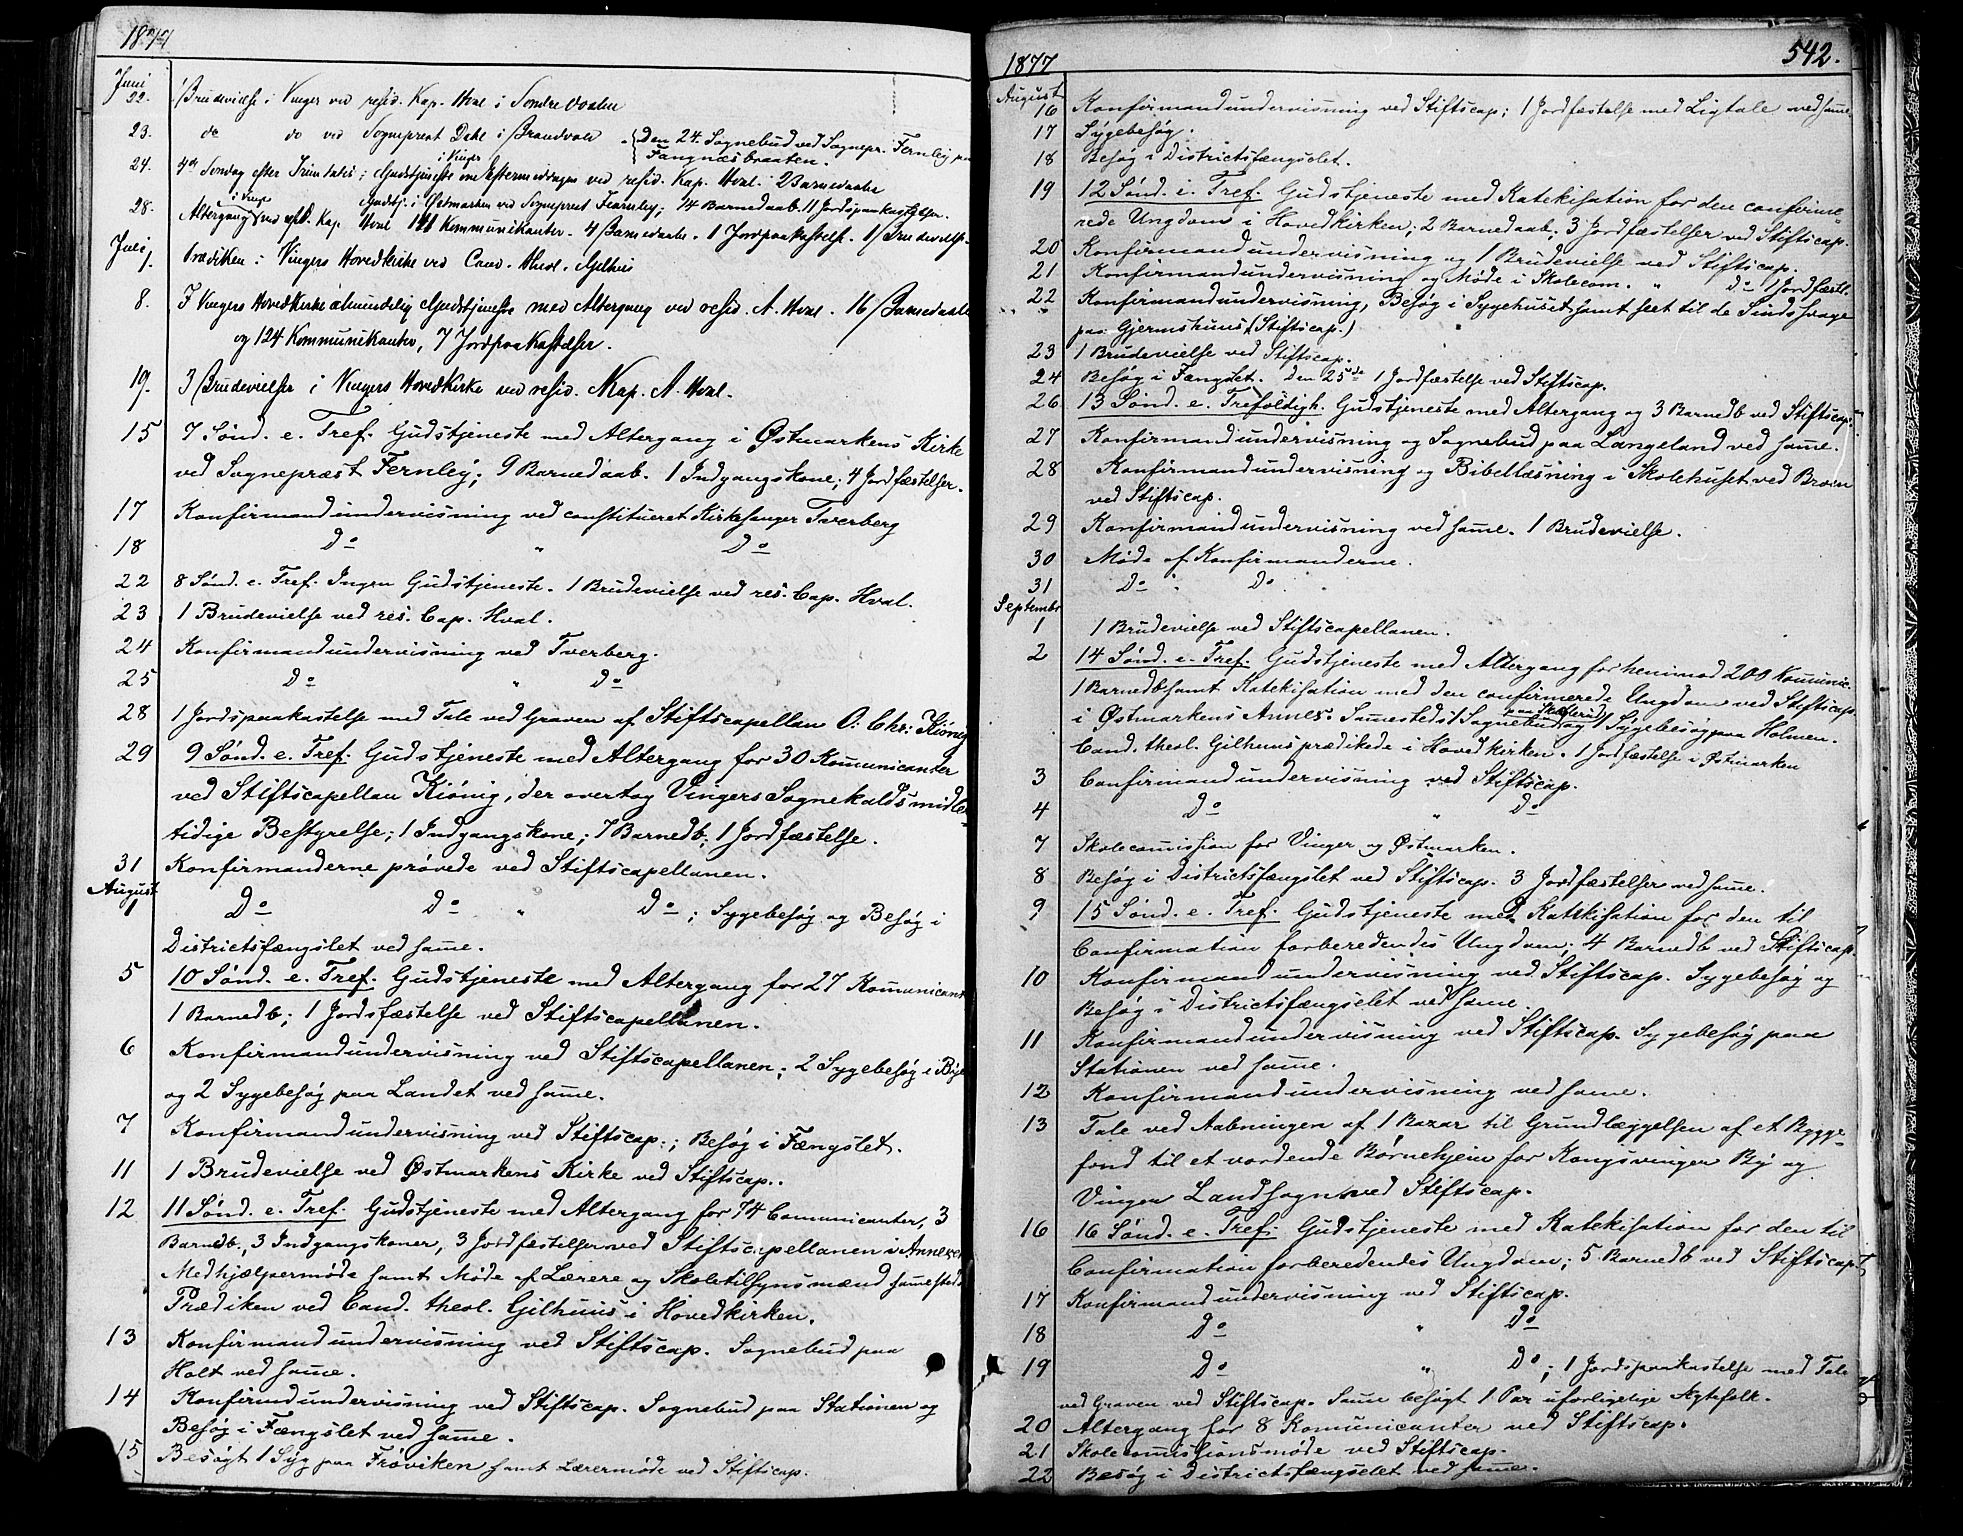 1877
Juni
22. Brudevielse i Vinger ved resid. Kap. Hval i Søndre Odalen
23. do do ved Sognepræst Dehl i Brandvold. {Den 24. Sognebud ved Sognepr. Fernley paa
Fangnæsbraaten.
i Vinger
24. 4de Søndag efter Trinitatis; Gudstjeneste om Eftermiddagen ved resid. Kap. Hval. 2 Barnedaabe
Gudstj. i Østmarken ved Sognepræst Fearnley; 14 Barnedaab. 11 Jordspaakastelser.
i Vinger
28. Altergang ved resid. Kap Hval 121 Kommunikanter. 4 Barnedaabe. 1 Jordpaakastelse. 1 Brudevielse.
Juli
1. Prædiken i Vingers Hovedkirke ved Cand. theol. Gjelhus
8. I Vingers Hovedkirke almindelig Gudstjeneste med Altergang ved resid. A. Hval. 16 Barnedaabe
og 124 Kommunikanter, 7 Jordpaakastelser.
19. 3 Brudevielser i Vingers Hovedkirke ved resid. Kap. A. Hval.
15 7 Sønd. e. Tref. Gudstjeneste med Altergang i Østmarkens Kirke
ved Sognepræst Fernley; 9 Barnedaab. 1 Indgangskone; 4 Jordfæstelser.
17 Konfirmandundervisning ved constitueret Kirkesanger Tverberg
18 Do " Do
22 8 Sønd. e. Tref. Ingen Gudstjeneste. 1 Brudevielse ved res. Cap. Hval.
23 1 Brudevielse ved res. Cap. Hval.
24 Konfirmandundervisning ved Tverberg.
25 Do " Do
28 1 Jordspaakastelse med Tale ved Graven af Stiftscapellan O. Chr. Kiönig
29 9 Sønd. e. Tref. Gudstjeneste med Altergang for 30 Komunicanter
ved Stiftscapellan Kiönig, der overtog Vingers Sognekalds midler-
tidige Bestyrelse; 1 Indgangskone; 7 Barnedb; 1 Jordfæstelse.
31 Konfirmanderne prøvede ved Stiftscapellanen.
August
1 Do Do " Do; Sygebesøg og Besøg i
Districtsfængslet ved same.
5 10 Sønd. e. Tref. Gudstjeneste med Altergang for 27 Komunicant
1 Barnedb; 1 Jordsfæstelse ved Stiftscapellanen.
6 Konfirmandundervisning ved Stiftscapellanen; 2 Sygebesøg i Bye
og 2 Sygebesøg paa Landet ved same.
7 Konfirmandundervisning ved Stiftscap.; Besøg i Fængslet.
11 1 Brudevielse ved Østmarkens Kirke ved Stiftscap..
12 11 Sønd. e. Tref. Gudstjeneste med Altergang for 74 Communicanter, 3
Barnedb., 3 Indgangskoner, 3 Jordfæstelser ved Stiftscapellanen i Annexet
Medhjælpermøde samt Møde af Lærere og Skoletilsynsmænd sammesteds
Prædiken ved Cand. theol. Gilhuus i Hovedkirken.
13 Konfirmandundervisning ved Stiftscap. Sognebud paa
Holt ved same.
14 Konfirmandundervisning ved Stiftscap. Sognebud paa Stationen og
Besøg i Fængslet ved same.
15 Besøgt 1 Syg paa Frøviken samt Lærermøde ved Stiftscap.
1877 542.
August
16 Konfirmandundervisning ved Stiftscap; 1 Jordfæstelse med Ligtale ved same
17 Sygebesøg.
18 Besøg i Districtsfængslet.
19 12 Sønd. i. Tref. Gudstjeneste med Katekisation for den confirme-
rede Ungdom i Hovedkirken; 2 Barnedaab; 3 Jordfæstelser ved Stiftscap.
20 Konfirmandundervisning og 1 Brudevielse ved Stiftscap.
21 Konfirmandundervisning og Møde i Skolecom. " Do 1 Jordfæstl.
22 Konfirmandundervisning, Besøg i Sygehuset samt seet til de Sindssvage
paa Gjermshuus (Stiftscap.)
23 1 Brudevielse ved Stiftscap.
24 Besøg i Fængslet. Den 25de 1 Jordfæstelse ved Stiftscap.
26 13 Sønd. e. Trefoldigh. Gudstjeneste med Altergang og 3 Barnedb ved Stiftscap.
27 Konfirmandundervisning og Sognebud paa Langeland ved same.
28 Konfirmandundervisning og Bibellæsning i Skolehuset ved Broen
ved Stiftscap.
29 Konfirmandundervisning ved same. 1 Brudevielse.
30 Møde af Konfirmanderne.
31 Do " Do
Septembr
1 1 Brudevielse ved Stiftscapellanen.
2 14 Sønd. e. Tref. Gudstjeneste med Altergang for henimod 200 Komunic.
1 Barnedb samt Katekisation med den confirmerede Ungdom ved Stiftscap.
i Østmarkens Annex. Samesteds 1 Sognebud og 1 Sygebesøg paa Holmen.
Cand. theol. Gilhuus prædikede i Hovedkirken. 1 Jordfæstelse i Østmarken
3 Confirmandundervisning ved Stiftscap.
4 Do " Do
7 Skolecomission for Vinger og Østmarken.
8 Besøg i Districtsfængslet ved Stiftscap. 3 Jordfæstelser ved same.
9 15 Sønd. e. Tref. Gudstjeneste med Katekisation for den til
Confirmation forberedendes Ungdom; 4 Barnedb ved Stiftscap.
10 Konfirmandundervisning ved Stiftscap. Sygebesøg og
Besøg i Districtsfængselet ved same.
11 Konfirmandundervisning ved Stiftscap. Sygebesøg paa
Stationen ved same.
12 Konfirmandundervisning ved same.
13 Tale ved Aabningen af 1 Bazar til Grundlæggelsen af et Bygge-
fond til et vordende Børnehjem for Kongsvinger By og
Vinger Landsogn ved Stiftscap.
16 16 Sønd. e. Tref. Gudstjeneste med Katekisation for den til
Confirmation forberedendes Ungdom; 5 Barnedb ved Stiftscap.
17 Konfirmandundervisning ved Stiftscap.
18 Do " Do
19 Do " Do; 1 Jordspaakastelse med Tale
ved Graven ved Stiftscap. Same besøgt 1 Par uforligelige Ægtefolk.
20 Altergang for 8 Komunicanter ved Stiftscap.
21 Skolecomissionsmøde ved Stiftscap.
22 Besøg i Districtsfængselet ved same.